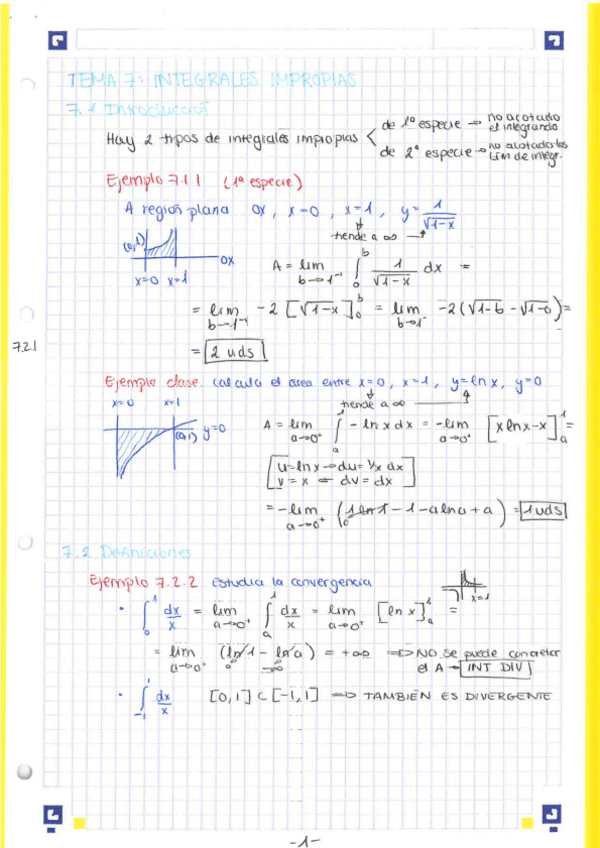 TEMA 7: INTEGRALES IMPROPIAS
7.1 Introducción
Hay 2 tipos de integrales impropias < de 1ª especie → no acotado el integrando
de 2ª especie → no acotado los lím de integr.
Ejemplo 7.1.1 (1ª especie)
A región plana OX, x=0, x=1, y= 1/√(1-x)
tiende a ∞
(0,1)
OX
x=0 x=1
A = lim b→1⁻ ∫₀ᵇ 1/√(1-x) dx =
= lim b→1⁻ -2 [√(1-x)]₀ᵇ = lim b→1⁻ -2(√(1-b) - √(1-0)) =
7.2.1
= 2 uds
Ejemplo clase calcula el área entre x=0, x=1, y=ln x, y=0
tiende a ∞
x=0 x=1
(0,1) y=0
A = lim a→0⁺ ∫ₐ¹ -ln x dx = -lim a→0⁺ [x ln x - x]ₐ¹ =
[u=ln x → du= 1/x dx
v = x ← dv = dx]
= -lim a→0⁺ (1 ln 1 - 1 - a ln a + a) = 1 uds
0
7.2 Definiciones
Ejemplo 7.2.2 Estudia la convergencia
x=1
· ∫₀¹ dx/x = lim a→0⁺ ∫ₐ¹ dx/x = lim a→0⁺ [ln x]ₐ¹ =
= lim a→0⁺ (ln 1 - ln a) = +∞ ⇒ NO se puede concretar
0 -∞ el A → INT DIV
· ∫₋₁¹ dx/x [0,1] ⊂ [-1,1] ⇒ TAMBIÉN ES DIVERGENTE
-1-